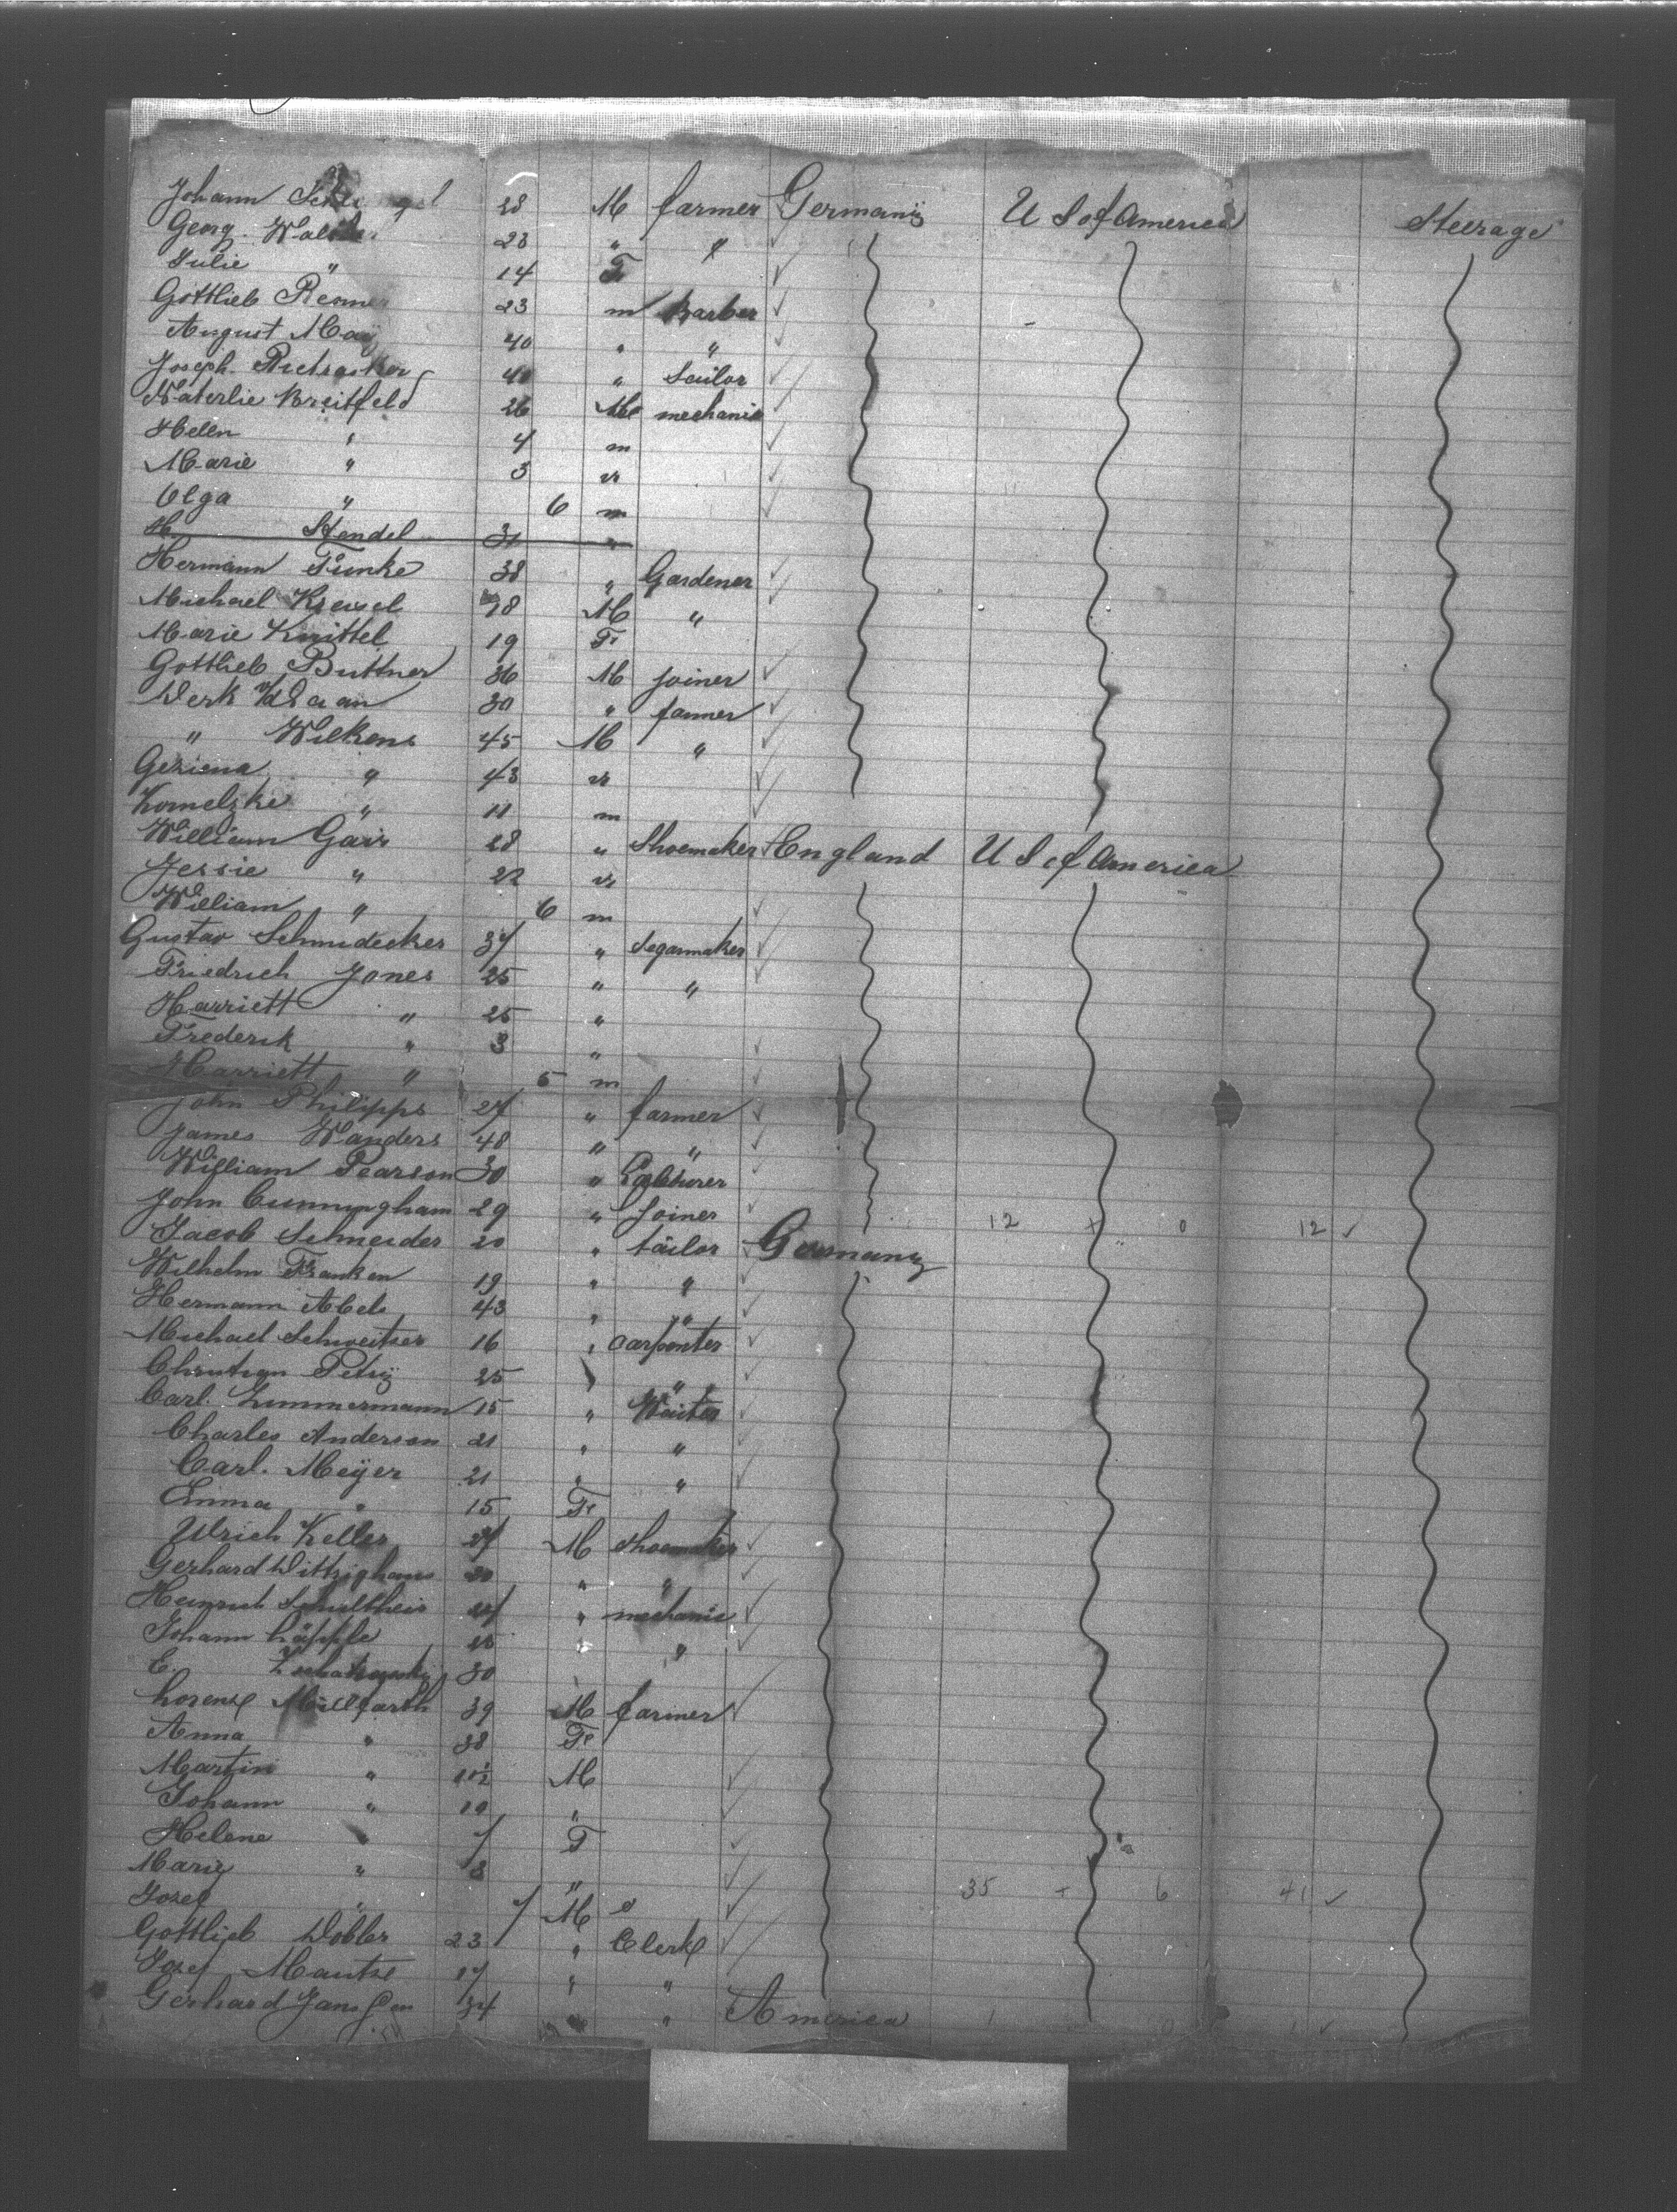 Johann 28 M farmer Germany U S of America Steerage
Georg. Walther 23 " "
Julie " 14 F
Gottlieb 23 m Barber
August May 40 " "
Joseph 40 " Sailor
Breitfeld 26 mechanic
Helen " 4 m
Marie " 3 "
Olga " 6 m
H Stendel 31 "
Hermann Funke 38 " Gardener
Michael Kreusel 28 M "
Marie Knittel 19 F
Gottlieb Buttner 36 M joiner
Derk v/d Laan 30 " farmer
" Wilkens 45 M "
Geziena " 43 "
" 11 m
William Gair 28 " Shoemaker England U S of America
Jessie " 22 "
William " 6 m
Gustav Schmidecker 37 " Segarmaker
Friedrich Jones 25 " "
Harriett " 25 "
Frederik " 3 "
Harriett " 5 m
John Philipps 27 " farmer
James Wanders 48 " "
William Pearson 30 "
John Cunningham 29 " Joiner 12 + 0 12 ✓
Jacob Schneider 20 " tailor Germany
Wilhelm Franken 19 " "
Hermann Abels 43 " "
Michael Schweitzer 16 " carpenter
Christian Petry 25 " "
Carl. Zimmermann 15 " Waiter
Charles Anderson 21 " "
Carl. Meÿer 21 " "
Emma " 15 F
Ulrich Keller 27 M shoemaker
Gerhard Dittzighaus 20 " "
Heinrich Schultheis 27 " mechanic
Johann Läpple 25 " "
E. 30
Lorenz Müllfarth 39 M farmer
Anna " 38 F
Martin " M
Johann " 10 "
Helene " 7 F
Marie " 3 "
Josef " 7 M 35 + 6 41 ✓
Gottlieb Dobler 23 " Clerk
Josef Mautze 17 " "
Gerhard Janssen 34 " " America 1 0 1 ✓